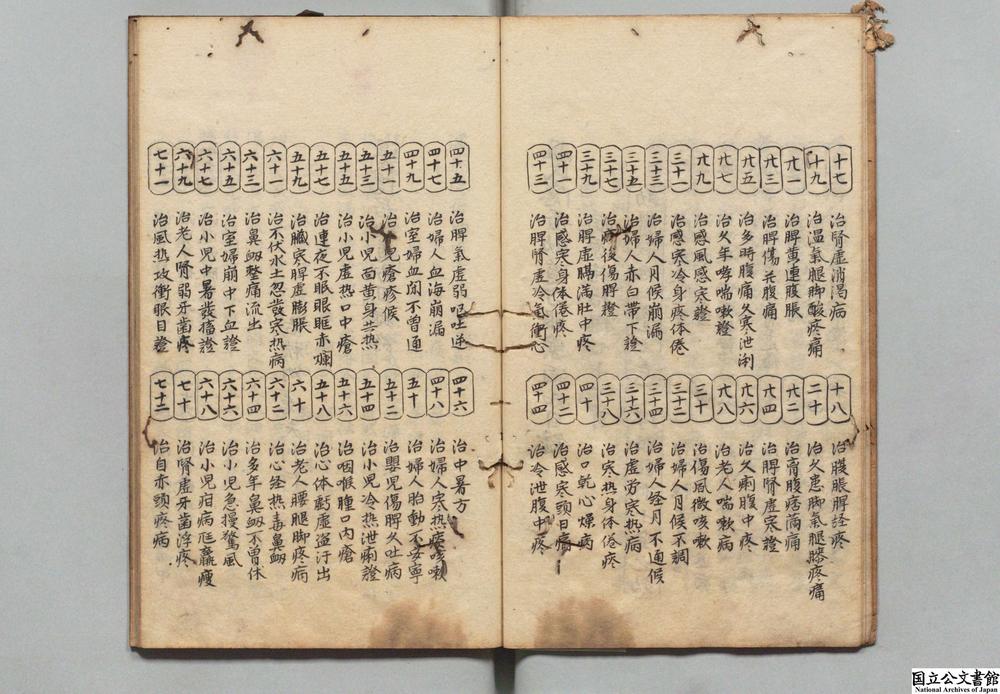 十七 治腎虛消渴病 十八 治腹脹脾經疼
十九 治温氣腿脚酸疼痛 二十 治久患脚氣腿膝疼痛
廿一 治脾黄連腹脹 廿二 治膏腹痞滿痛
廿三 治脾傷并腹痛 廿四 治脾腎虛寒證
廿五 治多時腹痛久寒泄涮 廿六 治久痢腹中疼
廿七 治久年哮喘嗽證 廿八 治老人喘嗽病
廿九 治感風感寒證 三十 治傷風微咳嗽
三十一 治感寒冷身疼体倦 三十二 治婦人月候不調
三十三 治婦人月候崩漏 三十四 治婦人經月不通候
三十五 治婦人赤白帯下證 三十六 治虛労寒热病
三十七 治病後傷脾證 三十八 治寒热身体倦疼
三十九 治脾虛腸滿肚中疼 四十 治口乾心燥病
四十一 治感寒身体倦疼 四十二 治感寒頭目痛
四十三 治脾腎虛冷氣衝心 四十四 治冷泄腹中疼
四十五 治脾氣虛弱呕吐逆 四十六 治中暑方
四十七 治婦人血海崩漏 四十八 治婦人寒热痰咳嗽
四十九 治室婦血闭不曽通 五十 治婦人胎動不安寧
五十一 治児瘡疹候 五十二 治嬰児傷脾久吐病
五十三 治小児面黄身共热 五十四 治小児冷热泄痢證
五十五 治小児虛热口中瘡 五十六 治咽喉腫口内瘡
五十七 治連夜不眠眼眶赤爛 五十八 治心体虧虛盗汗出
五十九 治臟寒脾虛膨脹 六十 治老人腰腿脚疼病
六十一 治不伏水土忽發寒热病 六十二 治心經热毒鼻衂
六十三 治鼻衂整痛流出 六十四 治多年鼻衂不曽休
六十五 治室婦崩中下血證 六十六 治小児急慢驚風
六十七 治小児中暑發搐證 六十八 治小児疳病尫羸瘦
六十九 治老人腎弱牙歯疼 七十 治腎虛牙歯浮疼
七十一 治風热攻衝眼目證 七十二 治自赤頭疼病
国立公文書館
National Archives of Japan